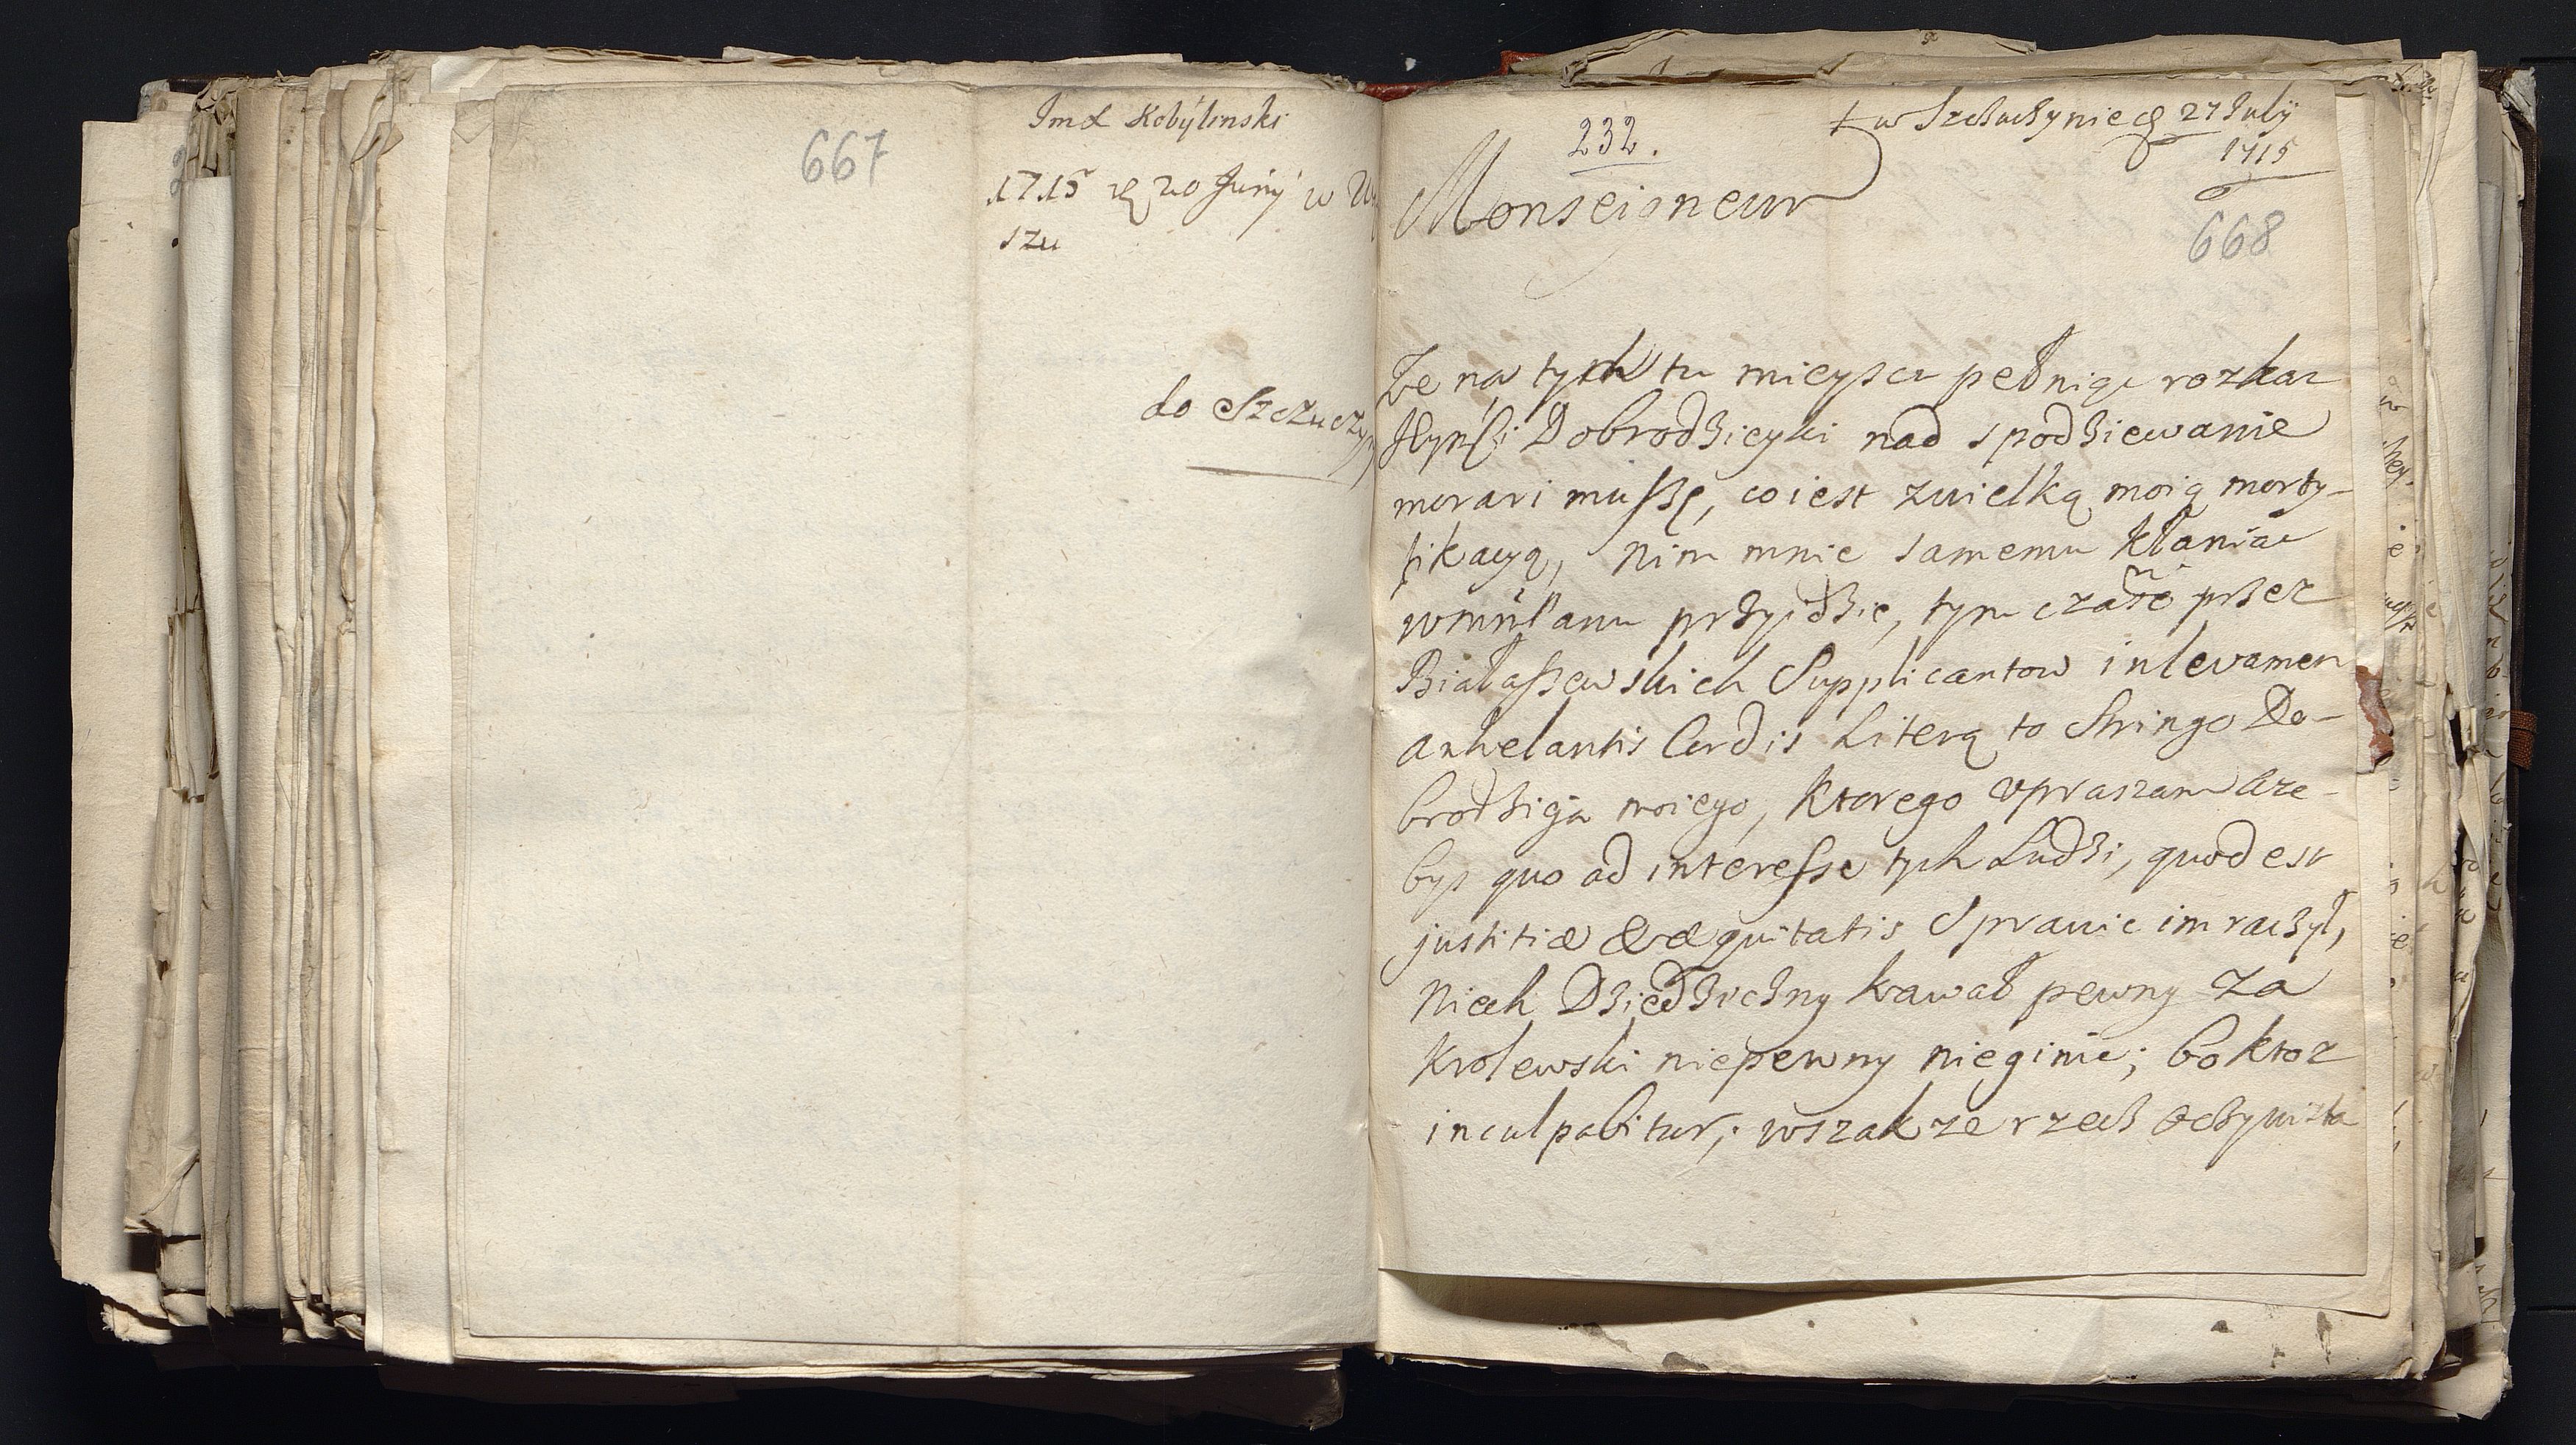 667
Imć Kobylinski
1715 20 Juny w
szu
do Szczuczy
232.
w Szchuchynie 27 Julÿ
1715
668
Monseigneur
Ze na tych tu mieysca pełniąc rozkaz
Dobrodzieyki nad spodziewanie
morari muszę, co iest zwielką moią morty-
fikacyą, Nim mnie samemu kłaniac
przyidzie, tym przez
Białaszewskich Supplicantow in levamen
anhelantis Cordis Literą to Stringo Do-
brodzieja moiego, ktorego upraszam aze-
bys quo ad interesse tych Ludzi, quod est
justitiæ & æquitatis Sprawic im raczył,
Niech Dziedziczny kawał pewny za
Krolewski niepewny nieginie; bo ktoz
inculpabitur; wszakze rzecz oczywista